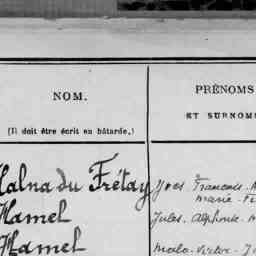 NOM.
(Il doit être écrit en bâtarde.)
PRÉNOMS
ET SURNOMS
Halna du Frétay Yves François
Marie
Hamel Jules Alphonse
Hamel Malo Victor